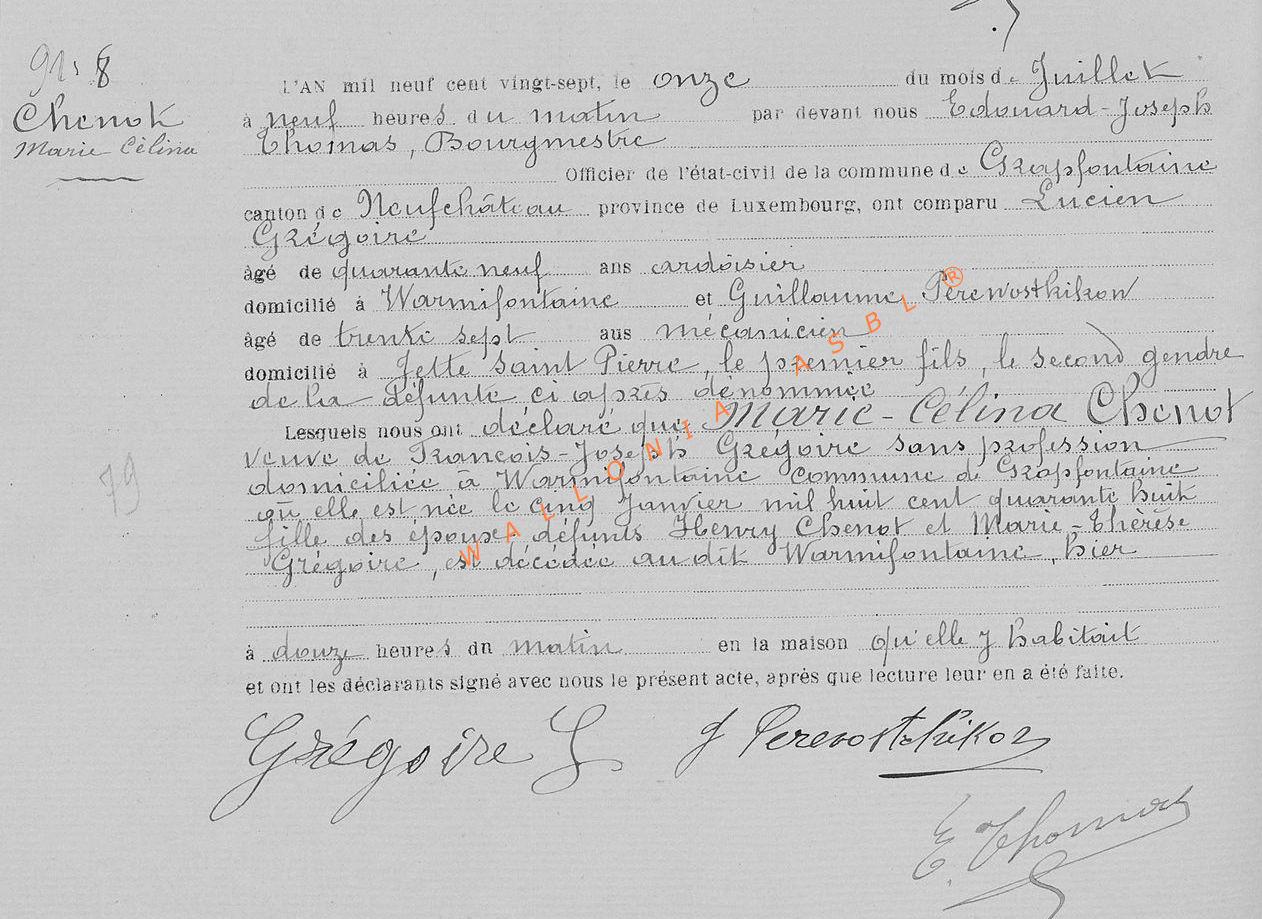 9bis 8
Chenot
Marie Célina
L'AN mil neuf cent vingt-sept, le onze du mois de Juillet
à neuf heures du matin par devant nous Edouard-Joseph
Thomas, Bourgmestre
Officier de l'état-civil de la commune de Grapfontaine
canton de Neufchâteau province de Luxembourg, ont comparu Lucien
Grégoire
âgé de quarante neuf ans ardoisier
domicilié à Warmifontaine et Guillaume Perewostkikow
âgé de trente sept aus mécanicien
domicilié à Jette Saint Pierre, le premier fils, le second gendre
de la défunte ci après dénommée
Lesquels nous ont déclaré que Marie-Célina Chenot
veuve de François-Joseph Grégoire sans profession
domiciliée à Warmifontaine commune de Grapfontaine
où elle est née le cinq Janvier mil huit cent quarante huit
fille des époux défunts Henry Chenot et Marie-Thérèse
Grégoire, est décédée au dit Warmifontaine, hier
à douze heures du matin en la maison qu'elle y habitait
et ont les déclarants signé avec nous le présent acte, après que lecture leur en a été faite.
Grégoire L
G Perevostchikoz
E. Thomas
79
WALLONIA ASBL®